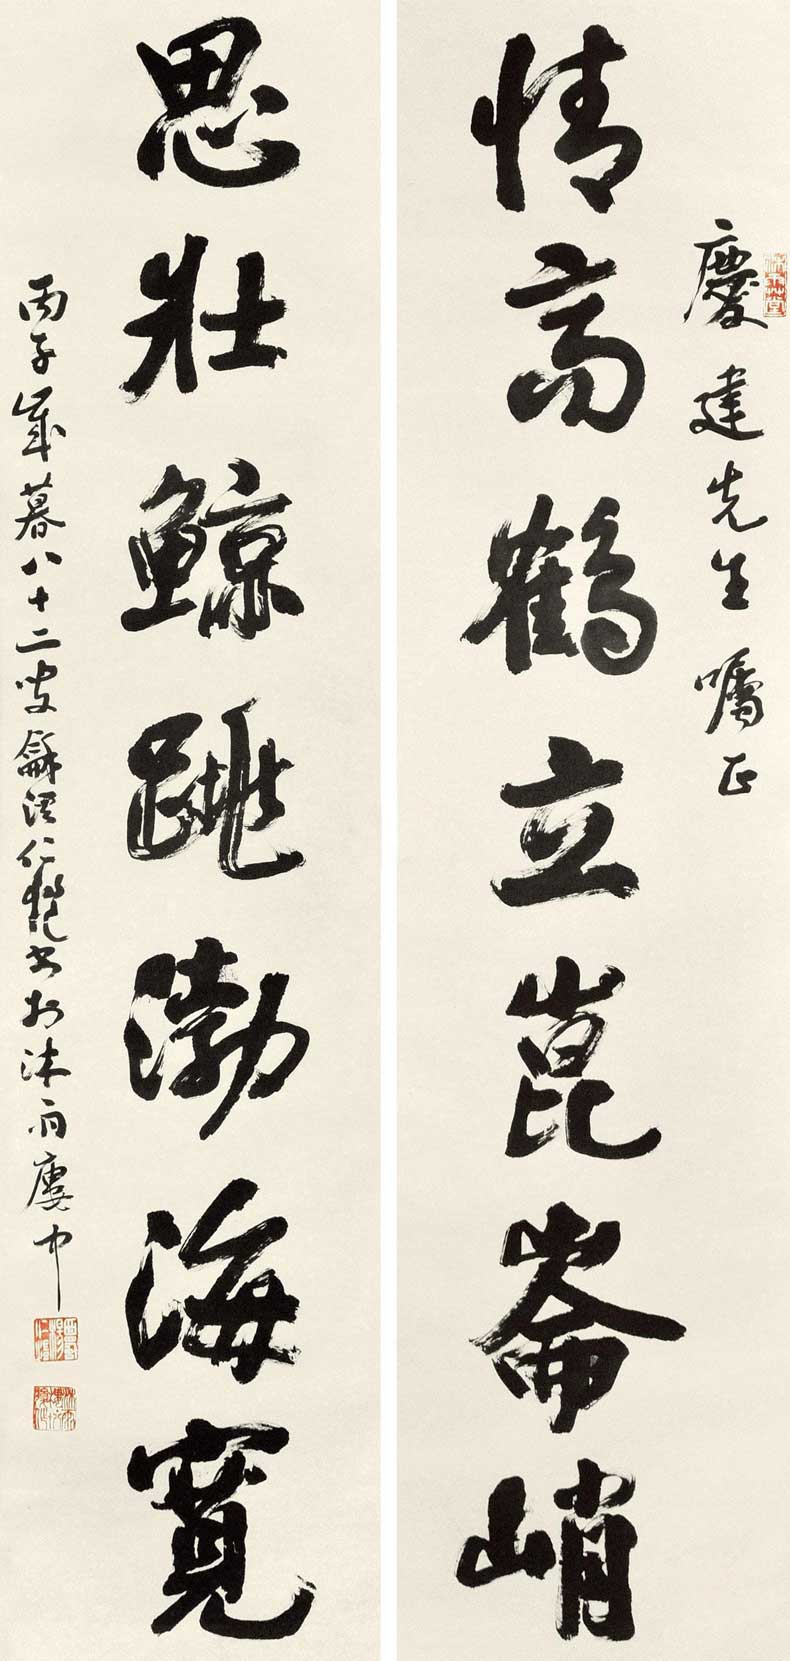 慶建先生囑正
情高鶴立崑崙峭
思壯鯨跳渤海寬
丙子歲暮八十二叟龢溪仁愷書於沐雨廔中